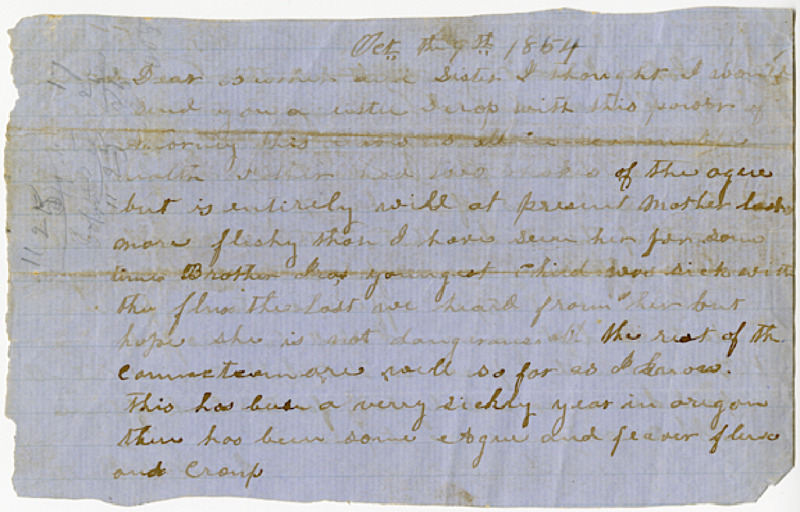 Oct the 9th 1854
Dear and Sister I thought I would
send you a little scrap with this of
this
health Father had two shakes of the ague
but is entirely well at present Mother looks
more fleshy than I have seen her for som
time Brother Iras youngest Child was sick with
the flux the last we heard from her but
hope she is not dangerous all the rest of the
are well so far as I know.
this has been a verry sickly year in oregon
there has been some ague and feaver flux
and Croup
11 25